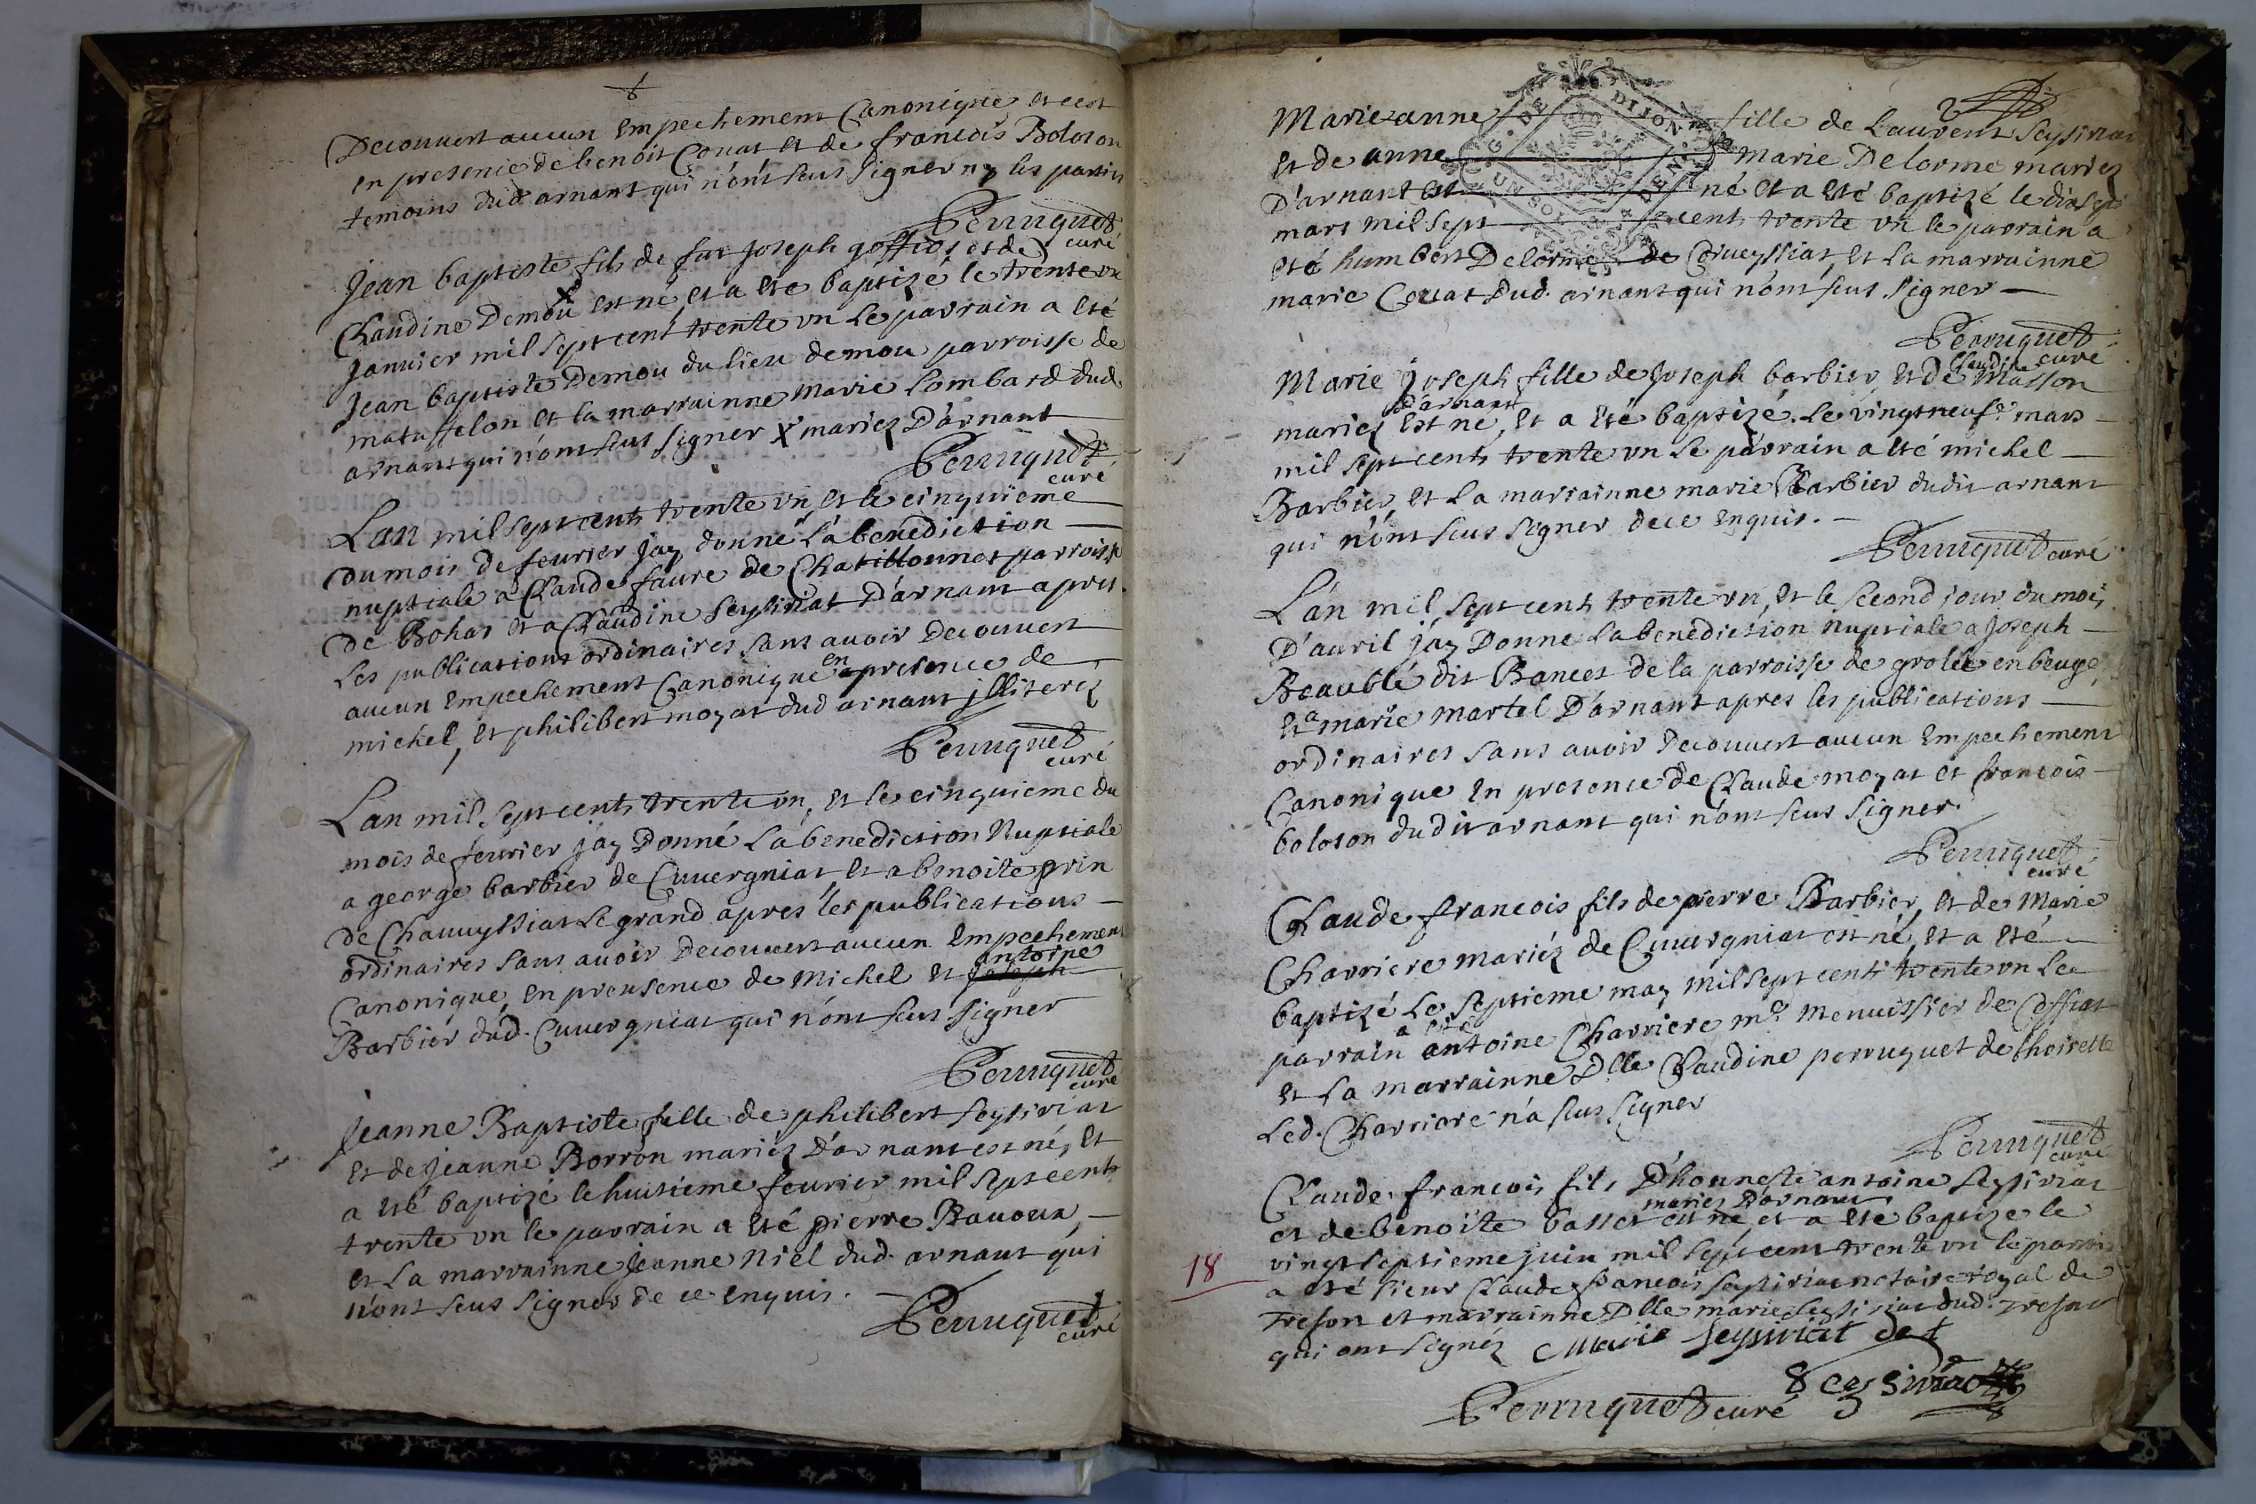 Decouvert aucun Empechement Canonique et cest
en presence de benoit Couat et de francois Boloson
temoins dud arnant qui n'ont seus signer ny les parties
Perruquet
curé
Jean baptiste fils de fut Joseph goffios et de
Claudine Demou X est né, et a ete baptizé le trente un
Janvier mil sept cent trente un le parrain a eté
Jean baptiste Demou du lieu demou parroisse de
mataffelon et la marrainne marie Lombard dud.
arnant qui n'ont seus signer X mariez D'arnant
Perruquet
curé
Lan mil sept cents trente un, et le cinquieme
du mois de feurier jay donné La benediction
nuptiale a Claude faure de Chatillonnet parroisse
de Bohas et a Claudine Seysiriat D'arnant apres
les publications ordinaires sans avoir Decouvert
aucun Empechement Canonique en presence de
michel, et philibert moyat dud arnant jlliterez
Perruquet
curé
Lan mil sept cents trente un, et le cinquieme du
mois de feurier jay Donné La benediction Nuptiale
a george barbier de Cuvergniat et a benoite prin
de Chavuyssiat Le grand apres les publications
ordinaires sans avoir Decouvert aucun Empechement
Canonique, en preusence de Michel et Joseph antoine
Barbier dud. Cuvergniat qui n'ont seus signer
Perruquet
curé
Jeanne Baptiste fille de philibert Seysiriat
et de Jeanne Borron mariez D'arnant est né, et
a eté baptizé le huitieme feurier mil sept cents
trente un le parrain a eté pierre Bavoux,
et La marrainne Jeanne Niel dud. arnant qui
n'ont seus signer de ce enquis.
Perruquet
curé
DIJON
UN SOL
DEN
Marie anne fille de Laurent Seysiriat
et de anne marie Delorme mariez
D'arnant est né et a eté baptizé le dixsept
mars mil sept cents trente un le parrain a
eté humbert Delorme de Corveyssiat, et La marrainne
marie Couat Dud. arnant qui n'ont seus signer
Perruquet
curé
Marie Joseph fille de Joseph barbier, et de Claudine Masson
mariez D'arnant est né, et a eté baptizé. Le vingt neuf.e mars
mil sept cents trente un Le parrain a eté michel
Barbier, et La marrainne marie Barbier dudit arnant
qui n'ont seus signer de ce enquis.
Perruquet curé
L'an mil sept cents trente un, et le second jour du mois
D'auril jay Donné La benediction nuptiale a Joseph
Beaublé dit Bancet de la parroisse de grolée en beuge
et a marie martel D'arnant apres les publications
ordinaires sans avoir Decouvert aucun Empechement
Canonique en presence de Claude moyat et francois
boloson dudit arnant qui n'ont seus signer.
Perruquet
curé
Claude francois fils de pierre Barbier, et de Marie
Charriere mariéz de Cuvergniat est né, et a eté
baptizé Le septieme may mil sept cents trente un Le
parrain a eté antoine Charriere m.e Menuissier de Ceffiat
et La marrainne Dlle Claudine perruquet de thoirette
Led. Charriere n'a seus signer
Perruquet
curé
Claude francois fils D'honneste antoine Seysiriat
et de benoite basset mariez D'arnant est né et a eté baptize le
vingt septieme juin mil sept cent trente un le parrain
a eté Sieur Claude francois Seysiriat notaire royal de
Treffort et marrainne Dlle marie Seysiriat dud. Treffort
qui ont signéz Marie Seysiriat de t
Perruquet curé Seysiriat
18